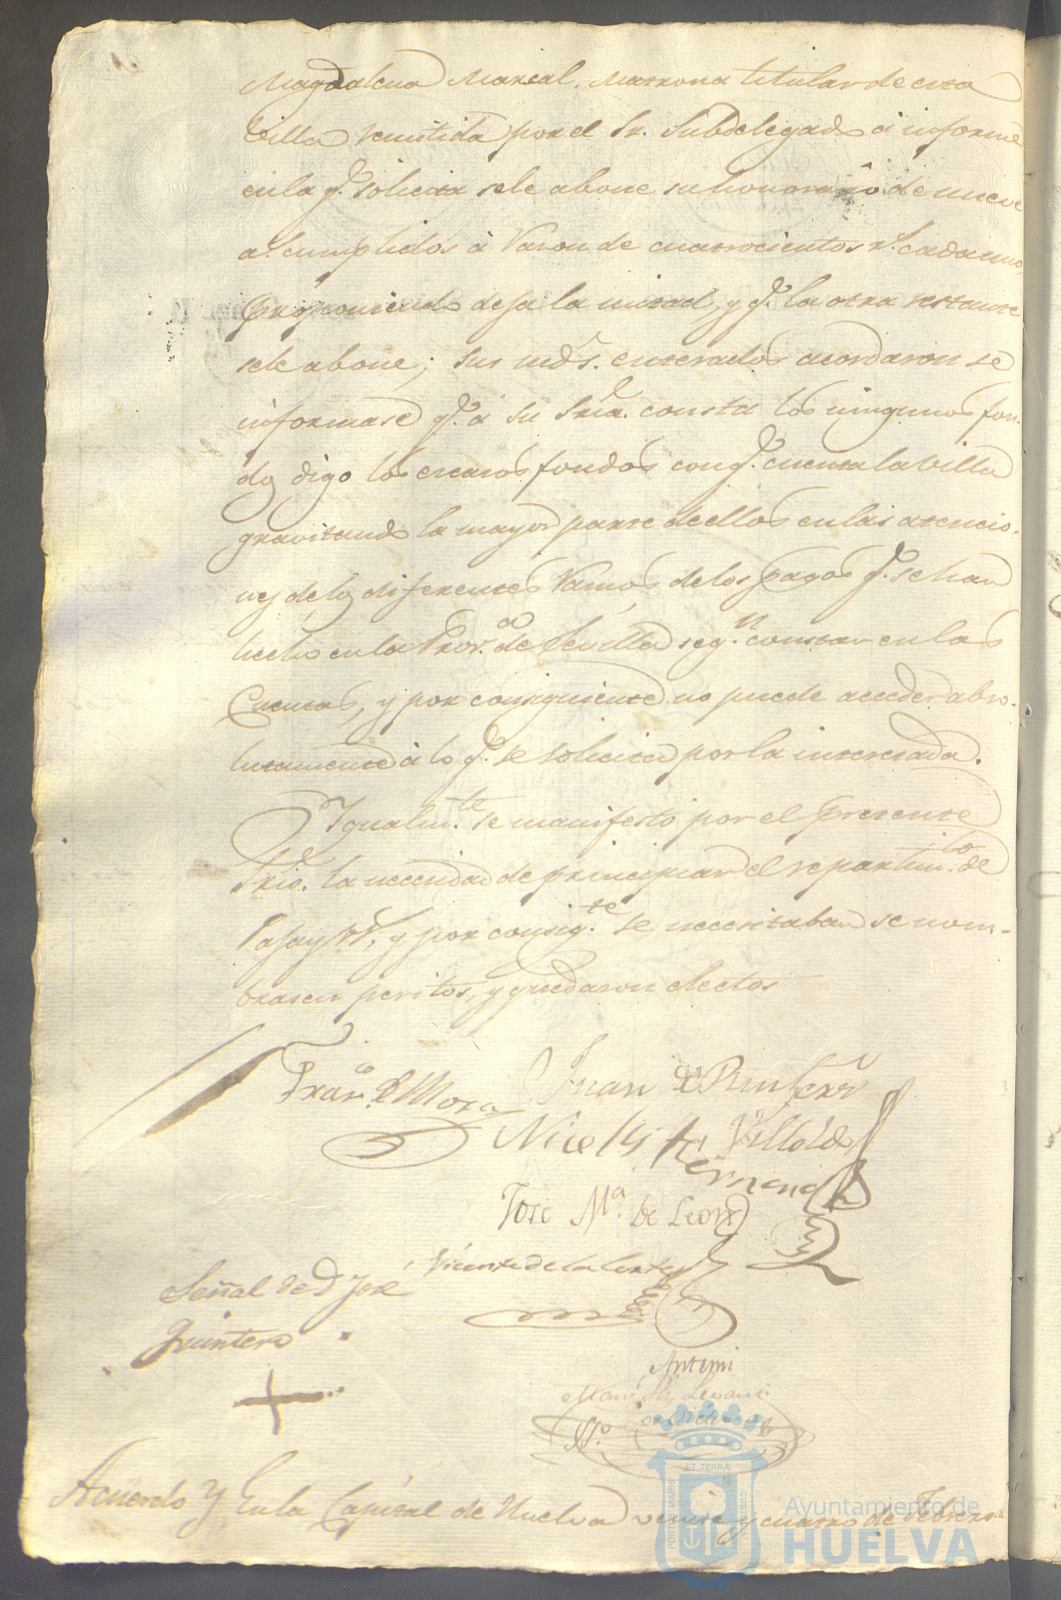 Magdalena Marcal, Matrona titular de esta
Villa remitida por el Sr. Subdelegado á informe
en la q.e solicita se le abone su honorario de nueve
a.s cumplidos á razon de cuatrocientos r.s cada uno
proponiendo deja la mitad, y q.e la otra restante
se le abone; sus mds. enterados acordaron se
informase q.e á su Sria. consta los ningunos fon-
dos digo los escasos fondos con q.e cuenta la Villa
gravitando la mayor parte de ellos en las atencio-
nes de los diferentes Ramos de los pagos q.e se han
hecho en la Prov.a de Sevilla seg.n constar en las
Cuentas, y por consiguiente no puede acceder abso-
lutamente á lo q.e se solicita por la interesada.
Igualm.te se manifesto por el presente
Srio. la necesidad de principiar el repartim.to de
Paja y, y por consig.te se necesitaban se nom-
brasen peritos, y quedaron electos
Fran.co de Mora Juan de
Nicolas Villoldo
Hernand
Jose M.a de Leon
Vicente de la Corte
Señal de D Jose
Quintero
+
Antemi
Acuerdo Y En la Capital de Huelva veinte y cuatro de Febrero
ET TERRAE
PORTUS MARIS
CUSTODIA
Ayuntamiento de
HUELVA